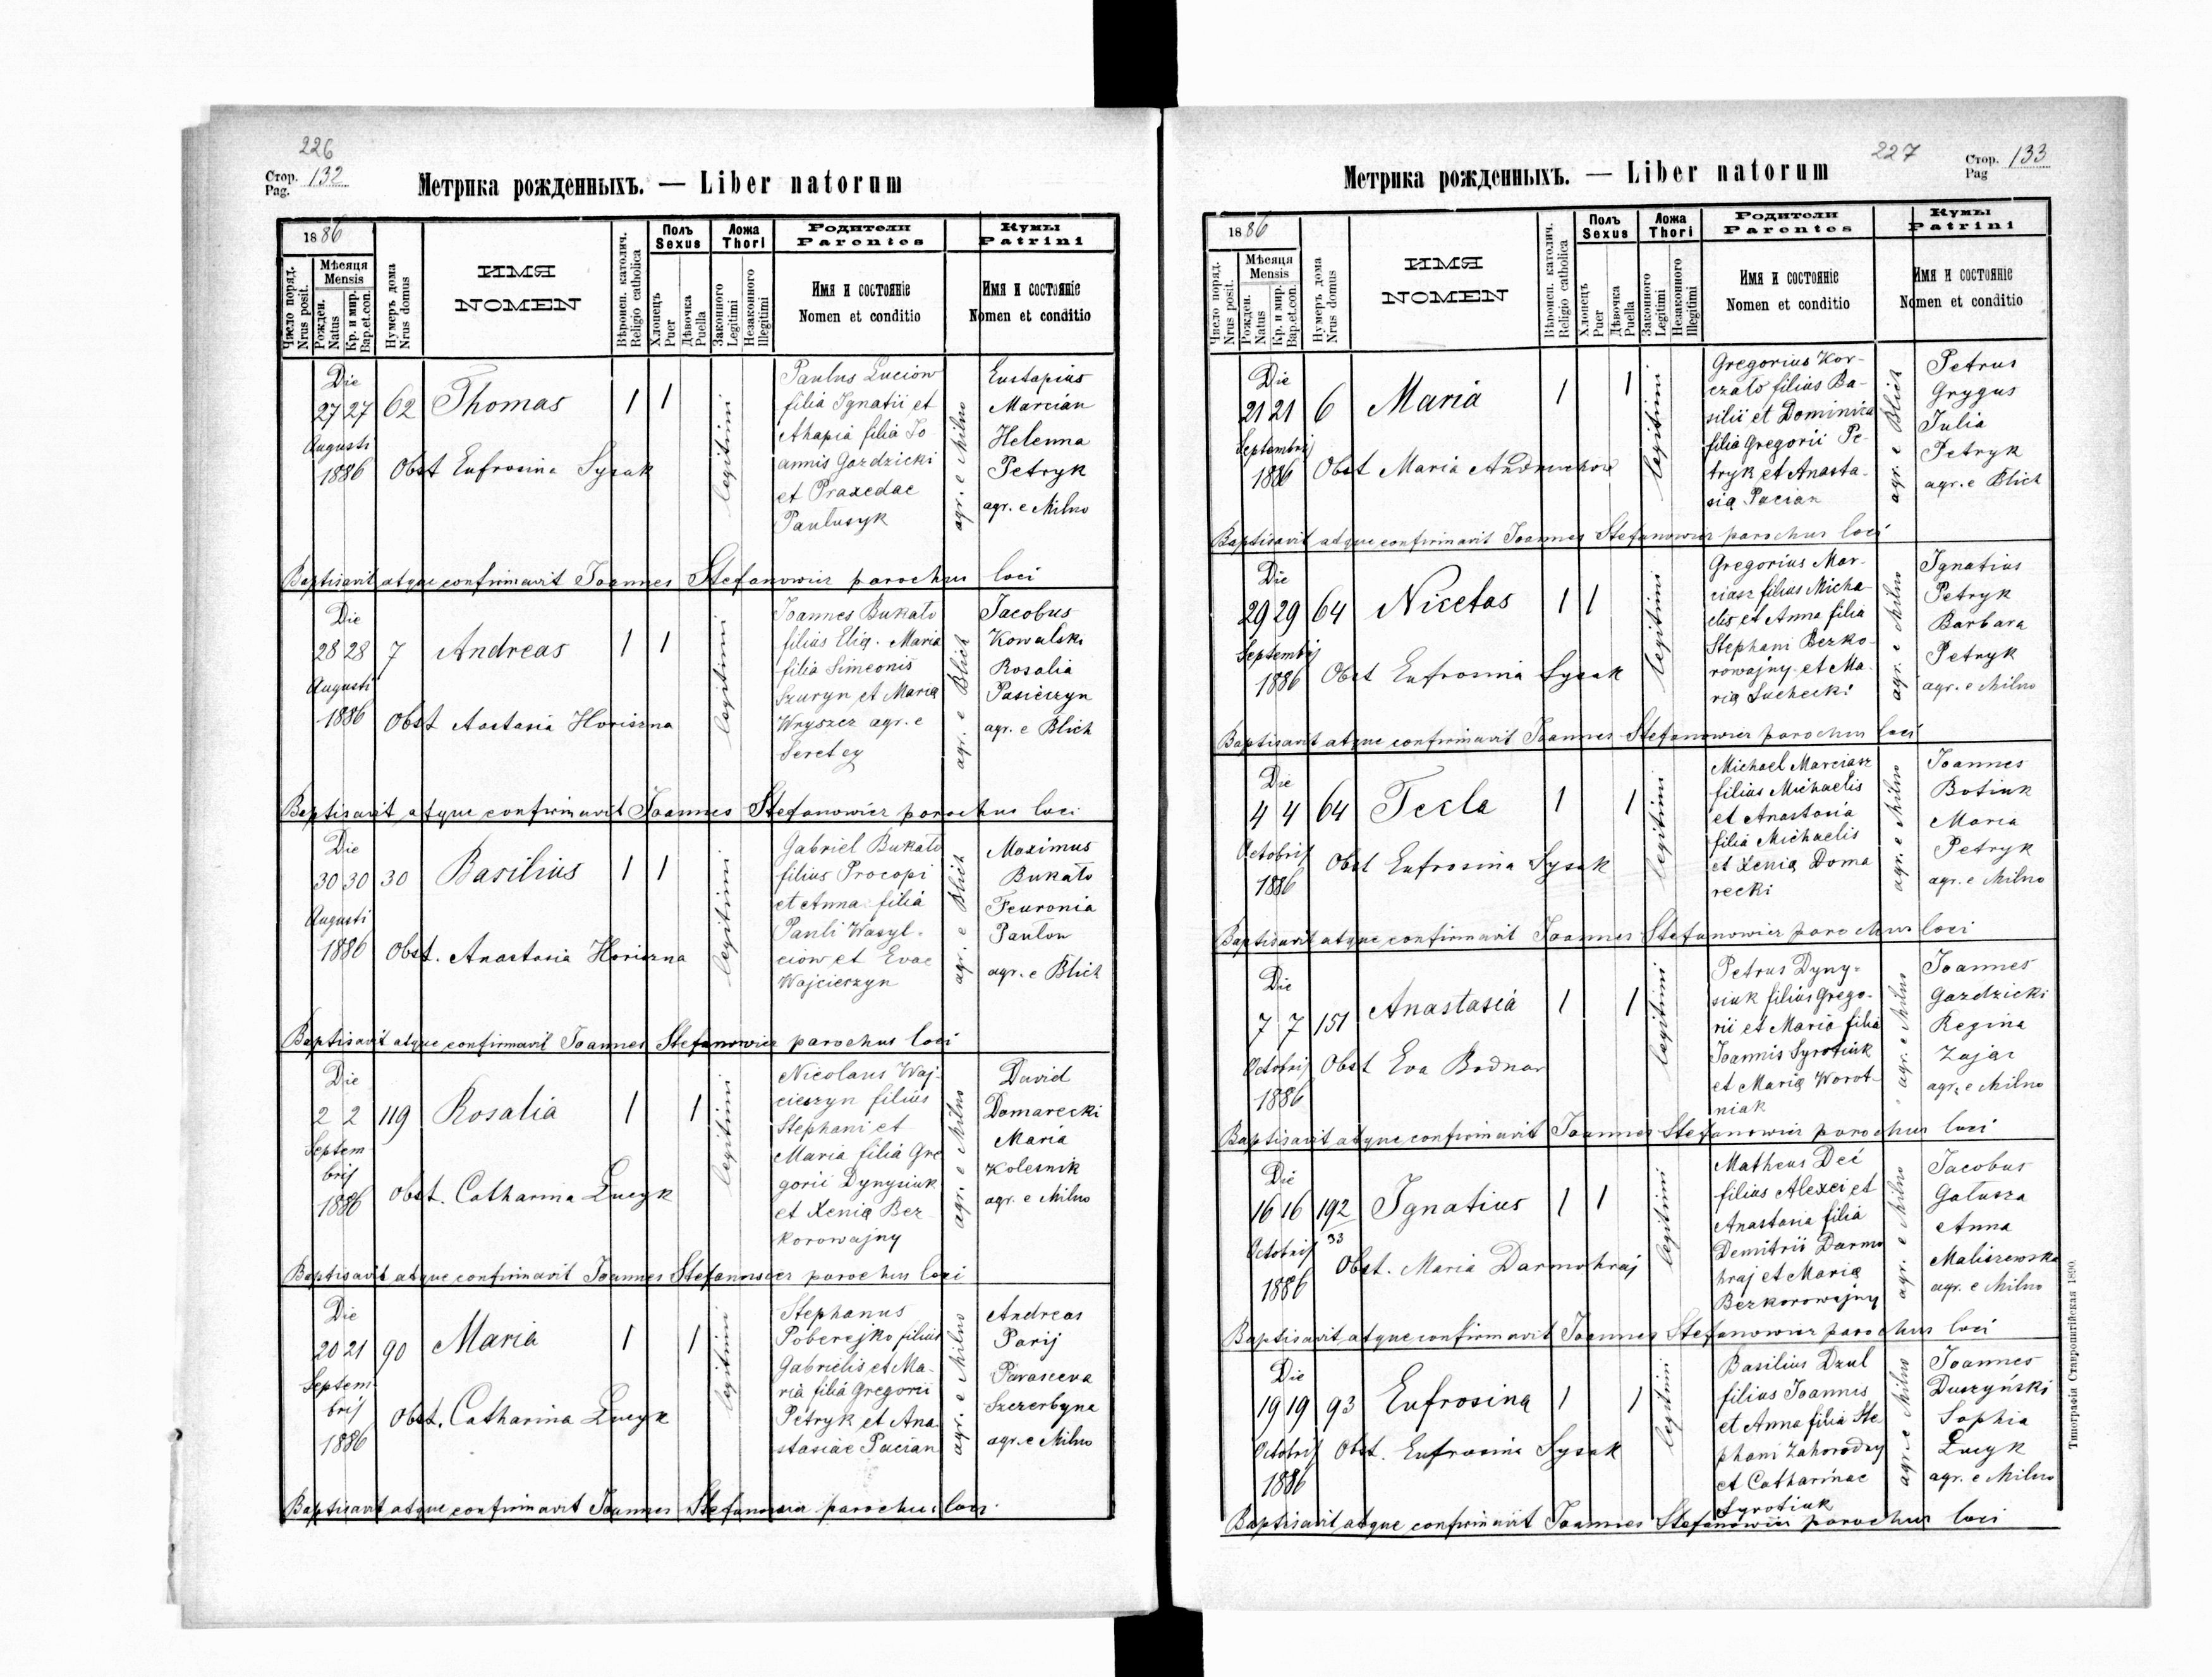 226
Стор. Pag. 132
Метрика рожденныхъ. — Liber natorum
1886
Число поряд. Nrus posit.
Мѣсяця Mensis
Рожден. Natus
Кр. и мир. Bap.et.con.
Нумеръ дома Nrus domus
ИМЯ
NOMEN
Вѣроисп. католич. Religio catholica
Полъ Sexus
Хлопецъ Puer
Дѣвочка Puella
Ложа Thori
Законного Legitimi
Незаконного Illegitimi
Родители
Parentes
Имя и состояніе
Nomen et conditio
Кумы
Patrini
Имя и состояніе
Nomen et conditio
Die
27 27 62 Thomas 1 1
Augusti
1886 Obst Eufrosina Sysak
legitimi
Paulus Luciow
filia Ignatii et
Ahapia filia Jo
annis Gazdzicki
et Praxedae
Pautusyk
agr. e Milno
Eustapius
Marcian
Helenna
Petryk
agr. e Milno
Baptisavit atque confirmavit Joannes Stefanowicz parochus loci
Die
28 28 7 Andreas 1 1
Augusti
1886 Obst Anastasia Horiszna
legitimi
Joannes Bukato
filius Elia. Maria
filia Simeonis
Szuryn et Maria
Wryszcz agr. e
Seretez
agr. e Blich
Jacobus
Kowalski
Rosalia
Pasieczyn
agr. e Blich
Baptisavit atque confirmavit Joannes Stefanowicz parochus loci
Die
30 30 30 Basilius 1 1
Augusti
1886 Obst. Anastasia Horiszna
legitimi
Gabriel Bukato
filius Procopi
et Anna filia
Pauli Wasyl-
ciow et Evae
Wajcieszyn
agr. e Blich
Maximus
Bukato
Feuronia
Paulon
agr. e Blich
Baptisavit atque confirmavit Joannes Stefanowicz parochus loci
Die
2 2 119 Rosalia 1 1
Septem
brij
1886 Obst. Catharina Lucyk
legitimi
Nicolaus Waj-
cieszyn filius
Stephani et
Maria filia Gre
gorii Dynysiuk
et Xenia Bez
korowajny
agr. e Milno
David
Domarecki
Maria
Kolesnik
agr. e Milno
Baptisavit atque confirmavit Joannes Stefanowicz parochus loci
Die
20 21 90 Maria 1 1
Septem
brij
1886 Obst. Catharina Lucyk
legitimi
Stephanus
Poberejko filius
Gabrielis et Ma-
ria filia Gregorii
Petryk et Ana
stasiae Pacian
agr. e Milno
Andreas
Parij
Parasceva
Szczerbyna
agr. e Milno
Baptisavit atque confirmavit Joannes Stefanowicz parochus loci
227
Стор. Pag 133
Метрика рожденныхъ. — Liber natorum
1886
Число поряд. Nrus posit.
Мѣсяця Mensis
Рожден. Natus
Кр. и мир. Bap.et.con.
Нумеръ дома Nrus domus
ИМЯ
NOMEN
Вѣроисп. католич. Religio catholica
Полъ Sexus
Хлопецъ Puer
Дѣвочка Puella
Ложа Thori
Законного Legitimi
Незаконного Illegitimi
Родители
Parentes
Имя и состояніе
Nomen et conditio
Кумы
Patrini
Имя и состояніе
Nomen et conditio
Die
21 21 6 Maria 1 1
Septembrij
1886 Obst Maria Andruchow
legitimi
Gregorius Kor-
czato filius Ba-
silii et Dominica
filia Gregorii Pe-
tryk et Anasta-
sia Pacian
agr. e Blich
Petrus
Grygus
Julia
Petryk
agr. e Blich
Baptisavit atque confirmavit Joannes Stefanowicz parochus loci
Die
29 29 64 Nicetas 1 1
Septembrij
1886 Obst Eufrosina Sysak
legitimi
Gregorius Mar-
ciasz filius Micha
elis et Anna filia
Stephani Bezko-
rowajny et Ma-
ria Suchecki
agr. e Milno
Ignatius
Petryk
Barbara
Petryk
agr. e Milno
Baptisavit atque confirmavit Joannes Stefanowicz parochus loci
Die
4 4 64 Tecla 1 1
Octobrij
1886 Obst Eufrosina Sysak
legitimi
Michael Marciasz
filius Michaelis
et Anastasia
filia Michaelis
et Xenia Doma
recki
agr. e Milno
Joannes
Botiuk
Maria
Petryk
agr. e Milno
Baptisavit atque confirmavit Joannes Stefanowicz parochus loci
Die
7 7 151 Anastasia 1 1
Octobrij
1886 Obst Eva Bodnar
legitimi
Petrus Dyny-
siuk filius Grego-
rii et Maria filia
Joannis Syrotiuk
et Maria Worot-
niak
agr. e Milno
Joannes
Gazdzicki
Regina
Zajac
agr. e Milno
Baptisavit atque confirmavit Joannes Stefanowicz parochus loci
Die
16 16 192 Ignatius 1 1
33
Octobrij
1886 Obst. Maria Darmohraj
legitimi
Matheus Deć
filius Alexei et
Anastasia filia
Demitrii Darmo
hraj et Maria
Bezkorowajny
agr. e Milno
Jacobus
Gatusza
Anna
Maliszewska
agr. e Milno
Baptisavit atque confirmavit Joannes Stefanowicz parochus loci
Die
19 19 93 Eufrosina 1 1
Octobrij
1886 Obst. Eufrosina Sysak
legitimi
Basilius Dzul
filius Joannis
et Anna filia Ste
phani Zahorodny
et Catharinae
Syrotiuk
agr. e Milno
Joannes
Duszyński
Sophia
Lucyk
agr. e Milno
Baptisavit atque confirmavit Joannes Stefanowicz parochus loci
Типографія Ставропигійская 1890.